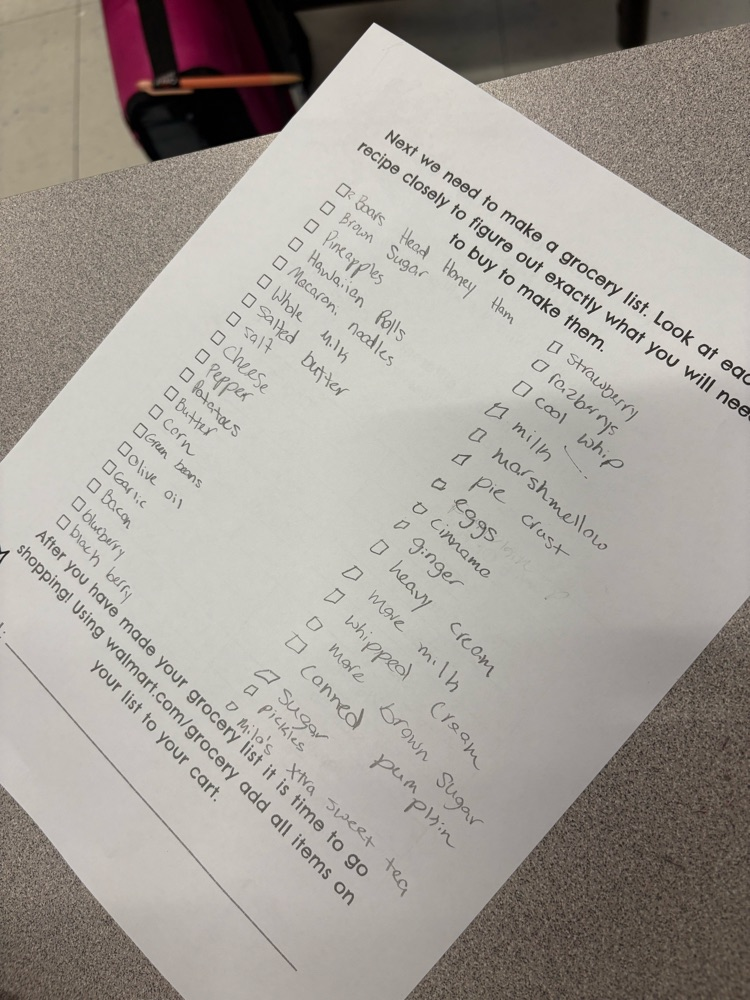 Next we need to make a grocery list. Look at eac
recipe closely to figure out exactly what you will need
to buy to make them.
Boars Head Honey Ham
Brown Sugar
Pineapples
Hawaiian Rolls
Macaroni noodles
Whole Milk
Salted butter
Salt
Cheese
Pepper
Potatoes
Butter
Corn
Green beans
Olive oil
Garlic
Bacon
blueberry
black berry
strawberry
razberrys
cool whip
milk
marshmellow
pie crust
eggs
cinnamo
ginger
heavy cream
more milk
whipped cream
more brown sugar
canned pumpkin
Sugar
pickles
Milo's xtra sweet tea
After you have made your grocery list it is time to go
shopping! Using walmart.com/grocery add all items on
your list to your cart.